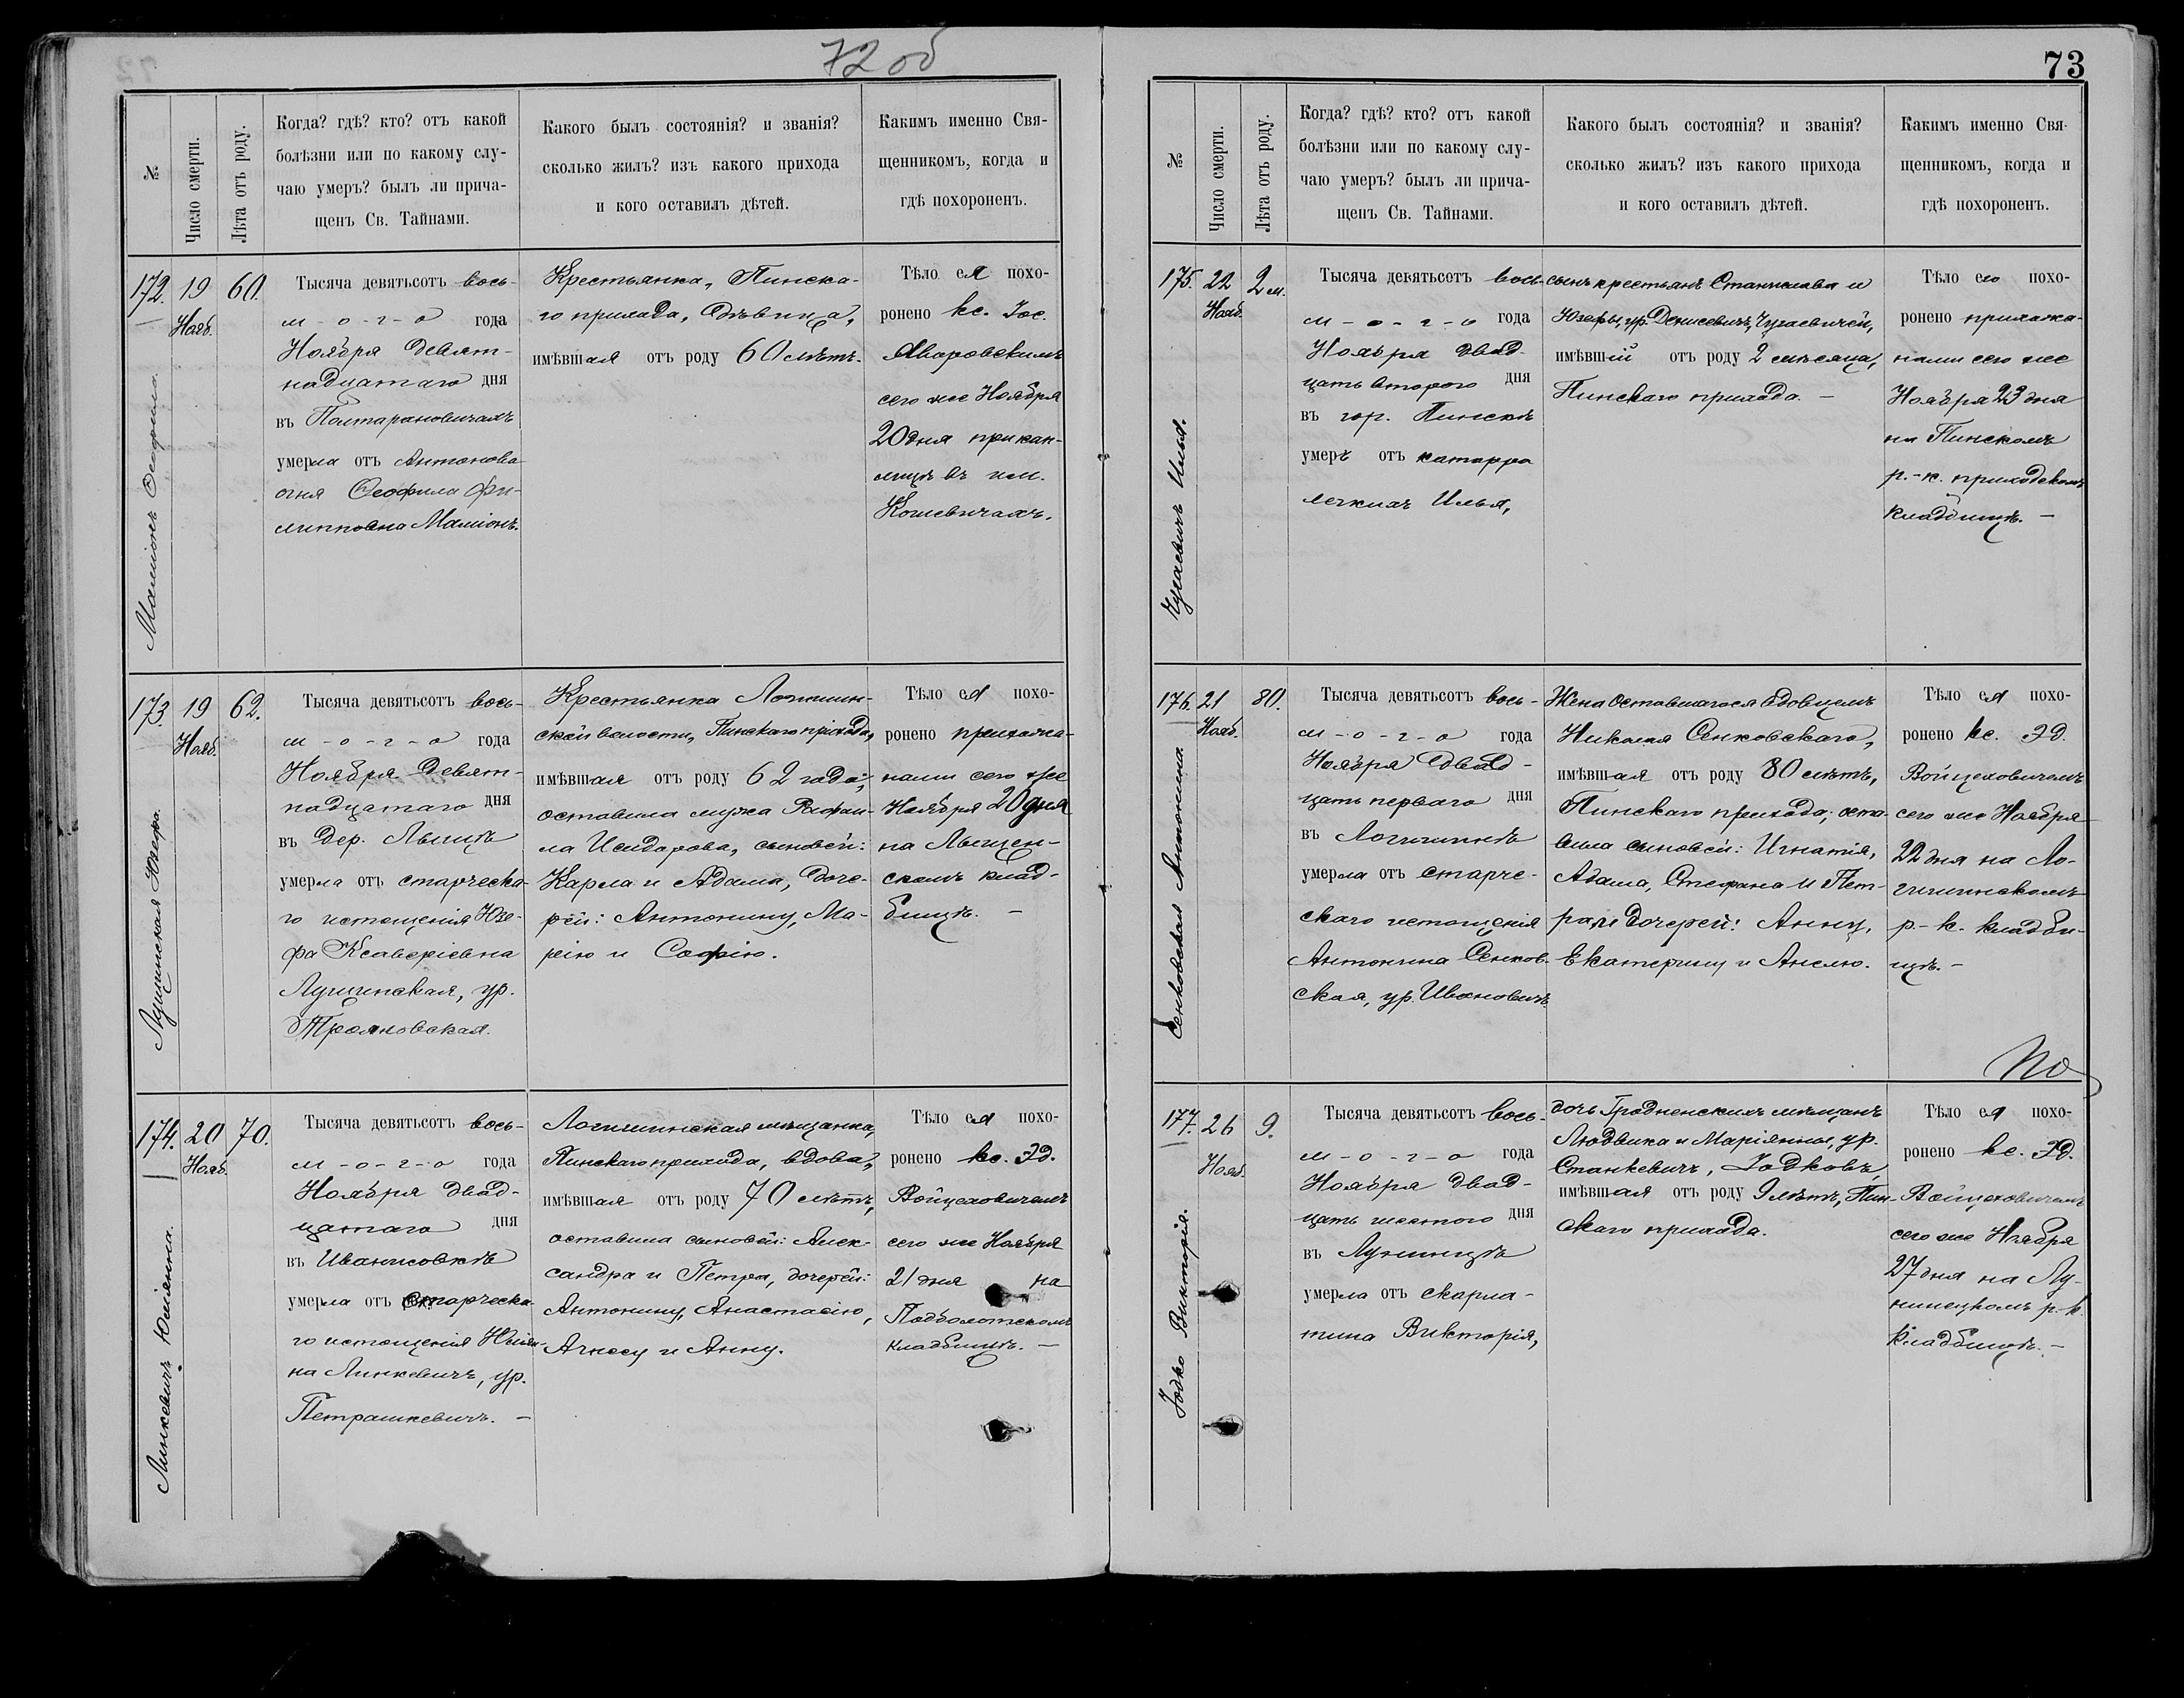 72 об
№
Число смерти.
Лѣта отъ роду.
Когда? гдѣ? кто? отъ какой
болѣзни или по какому слу-
чаю умеръ? былъ ли прича-
щенъ Св. Тайнами.
Какого былъ состоянія? и званія?
сколько жилъ? изъ какого прихода
и кого оставилъ дѣтей.
Какимъ именно Свя-
щенникомъ, когда и
гдѣ похороненъ.
172. 19 60.
Нояб.
Тысяча девятьсотъ вось-
м-о-г-о года
Ноября девят-
надцатаго дня
въ Полтарановичахъ
умерла отъ Антонова
огня Ѳеофила Фи-
липповна Маліонъ.
Крестьянка, Пинска-
го прихода, дѣвица,
имѣвшая отъ роду 60 лѣтъ.
Тѣло ея похо-
ронено кс. Іос.
Яворовскимъ
сего же Ноября
20 дня при кап-
лицѣ въ им.
Кошевичахъ.
173. 19 62.
Нояб.
Тысяча девятьсотъ вось-
м-о-г-о года
Ноября девят-
надцатаго дня
въ дер. Лыщѣ
умерла отъ старческа-
го истощенія Юзе-
фа Ксаверіевна
Лущинская, ур.
Трояновская.
Крестьянка Логишин-
ской волости, Пинскаго прихода,
имѣвшая отъ роду 62 года;
оставила мужа Рафаи-
ла Исидорова, сыновей:
Карла и Адама, доче-
рей: Антонину, Ма-
рію и Софію.
Тѣло ея похо-
ронено прихожа-
нами сего же
Ноября 20 дня
на Лыщен-
скомъ клад-
бищѣ. —
174. 20 70.
Нояб.
Тысяча девятьсотъ вось-
м-о-г-о года
Ноября двад-
цатаго дня
въ Иванисовкѣ
умерла отъ старческа-
го истощенія Юліан-
на Линкевичъ, ур.
Петрашкевичъ. —
Логишинская мѣщанка,
Пинскаго прихода, вдова,
имѣвшая отъ роду 70 лѣтъ,
оставила сыновей: Алек-
сандра и Петра, дочерей:
Антонину, Анастасію,
Агнесу и Анну.
Тѣло ея похо-
ронено кс. Эд.
Войцеховичемъ
сего же Ноября
21 дня на
Подболотскомъ
кладбищѣ. —
Маліонъ Ѳеофила.
Лущинская Юзефа.
Линкевичъ Юліанна.
73
№
Число смерти.
Лѣта отъ роду.
Когда? гдѣ? кто? отъ какой
болѣзни или по какому слу-
чаю умеръ? былъ ли прича-
щенъ Св. Тайнами.
Какого былъ состоянія? и званія?
сколько жилъ? изъ какого прихода
и кого оставилъ дѣтей.
Какимъ именно Свя-
щенникомъ, когда и
гдѣ похороненъ.
175. 22 2 м.
Нояб.
Тысяча девятьсотъ вось-
м-о-г-о года
Ноября двад-
цать второго дня
въ гор. Пинскѣ
умеръ отъ катарра
легкихъ Илья,
сынъ крестьянъ Станислава и
Юзефы, ур. Денисевичъ, Чугаевичей,
имѣвшій отъ роду 2 мѣсяца,
Пинскаго прихода. —
Тѣло его похо-
ронено прихожа-
нами сего же
Ноября 23 дня
на Пинскомъ
р.-к. приходскомъ
кладбищѣ. —
176. 21 80.
Нояб.
Тысяча девятьсотъ вось-
м-о-г-о года
Ноября двад-
цать перваго дня
въ Логишинѣ
умерла отъ старче-
скаго истощенія
Антонина Сенков-
ская, ур. Ивановичъ
Жена оставшагося вдовцемъ
Николая Сенковскаго,
имѣвшая отъ роду 80 лѣтъ,
Пинскаго прихода; оста-
вила сыновей: Игнатія,
Адама, Стефана и Пет-
ра, и дочерей: Анну,
Екатерину и Анелю.
Тѣло ея похо-
ронено кс. Эд.
Войцеховичемъ
сего же Ноября
22 дня на Ло-
гишинскомъ
р.-к. кладби-
щѣ. —
177. 26 9.
Нояб.
Тысяча девятьсотъ вось-
м-о-г-о года
Ноября двад-
цать шестого дня
въ Лунинцѣ
умерла отъ скарла-
тина Викторія,
дочь Гродненскихъ мѣщанъ
Людвика и Маріянны, ур.
Станкевичъ, Іодковъ,
имѣвшая отъ роду 9 лѣтъ, Пин-
скаго прихода.
Тѣло ея похо-
ронено кс. Эд.
Войцеховичемъ
сего же Ноября
27 дня на Лу-
нинецкомъ р.-к.
кладбищѣ. —
Чугаевичъ Илья.
Сенковская Антонина
Іодко Викторія.